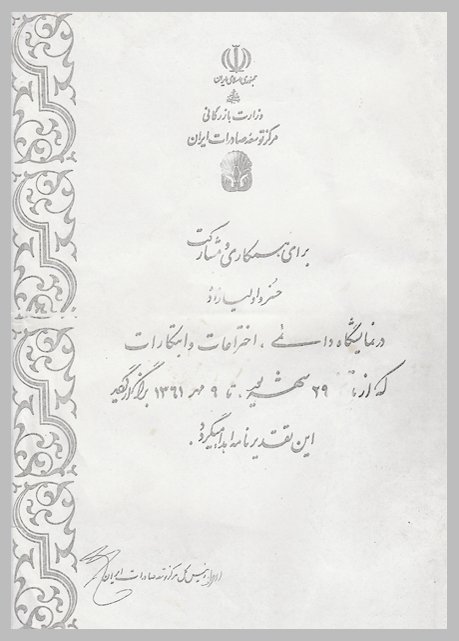 جمهوری اسلامی ایران
وزارت بازرگانی
مرکز توسعه صادرات ایران
برای همکاری و مشارکت
خسرو اولیازاد
در نمایشگاه دائمی ، اختراعات و ابتکارات
که از ۲۹ شهریور تا ۹ مهر ۱۳۶۱ برگزار گردید
این تقدیرنامه اهدا میگردد .
رئیس کل مرکز توسعه صادرات ایران